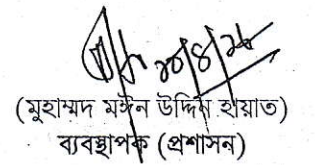 ২০/৪/২৬
(মুহাম্মদ মঈন উদ্দিন হায়াত)
ব্যবস্থাপক (প্রশাসন)